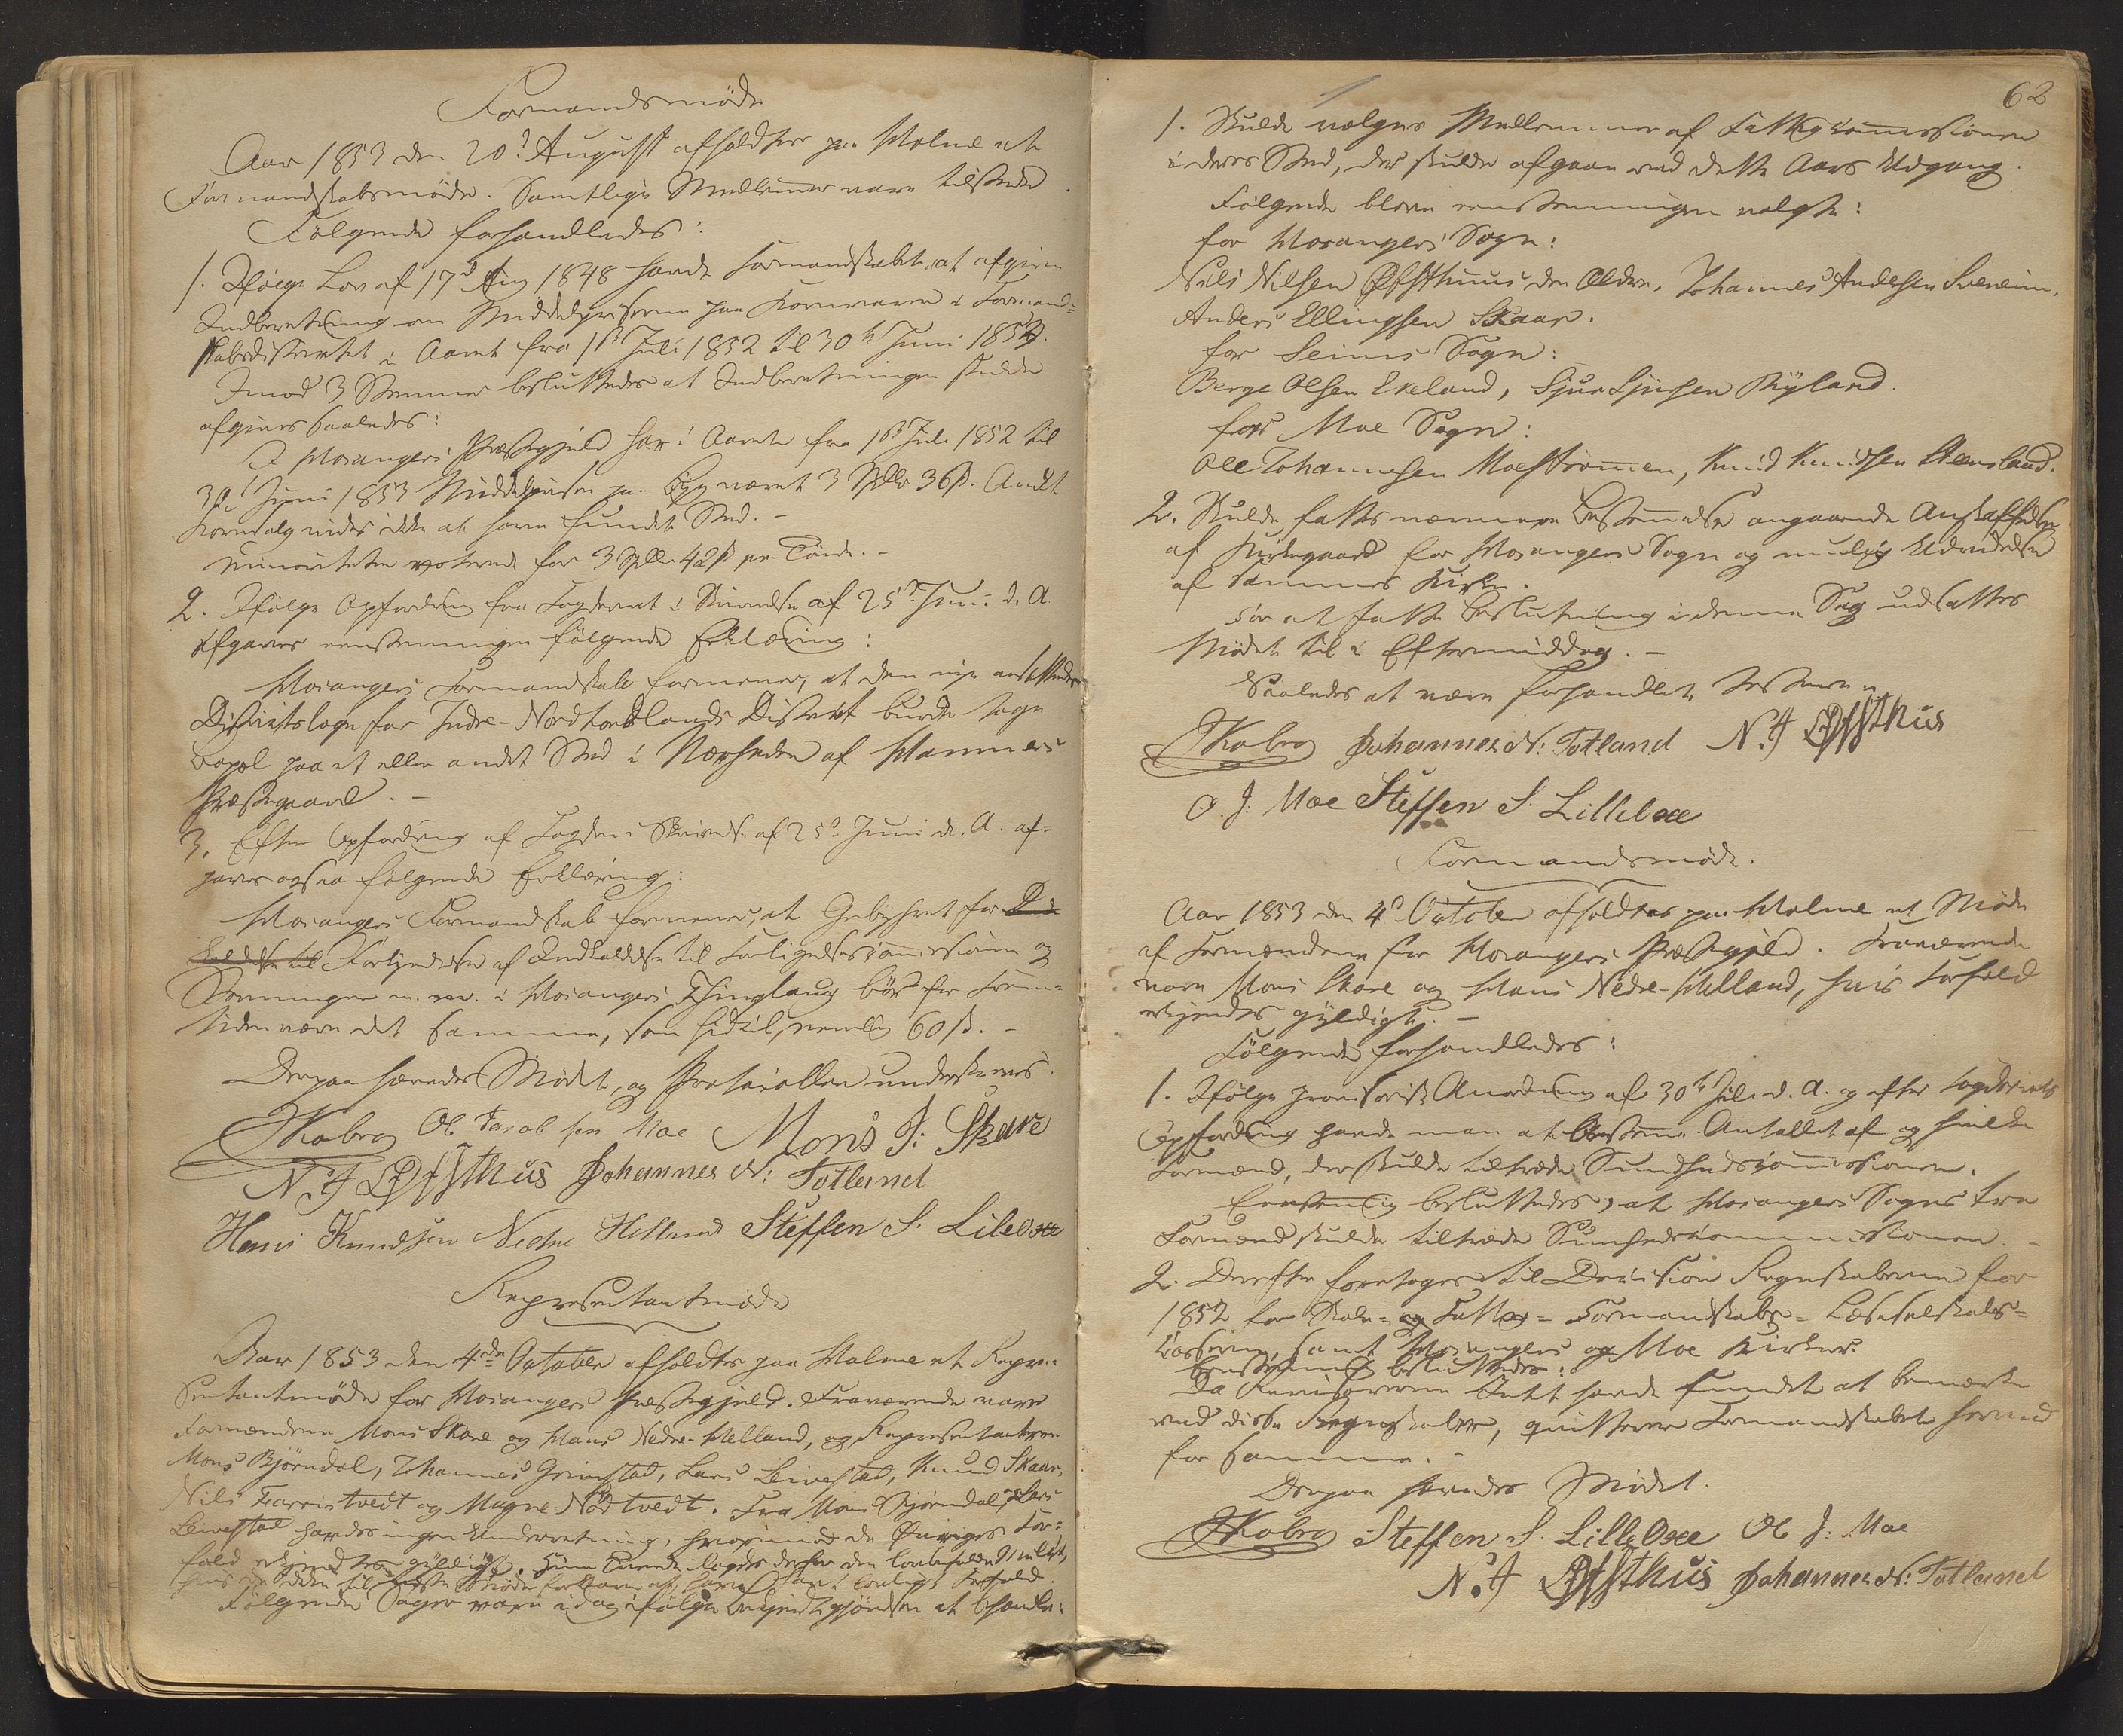 Formandsmøde
Aar 1853 den 20d August afholdtes paa Holme et
Formandskabsmøde. Samtlige Medlemmer vare tilstede.
Følgende forhandledes:
1. Ifølge Lov af 17d Aug 1848 havde Formandskabet at afgive
Indberetning om Middelpriserne paa Kornvarer i Formand-
skabsdistrictet i Aaret fra 1ste Juli 1852 til 30te Juni 1853.
Imod 3 Stemmer besluttedes at Indberetningen skulde
afgives saaledes:
I Hosangers Præstegjeld har i Aaret fra 1ste Juli 1852 til
30te Juni 1853 Middelprisen paa Byg været 3 Spdlr 36 ß. Andet
Kornsalg vides ikke at have fundet Sted. -
Minoriteten voterede for 3 Spdlr 42 ß pr. Tønde. -
2. Ifølge Opfordring fra Fogderiet i Skrivelse af 25de Juni d. A
afgaves eenstemmigen følgende Erklæring:
Hosangers Formandskab formener, at den nye ansættende
Districtslæge for Indre-Nordhordlands District burde tage
Bopæl paa et eller andet Sted i Nærheden af Hammers
Præstegaard. -
3. Efter Opfordring af Fogden i Skrivelse af 25d Juni d. A. af-
gaves ogsaa følgende Erklæring:
Hosangers Formandskab formener, at Gebyhret for
Forkyndelse af Indkaldelse til Forligelsescommissionen og
Stevninger m. m. i Hosangers Thinglaug bør for Frem-
tiden være det samme, som hidtil, nemlig 60 ß. -
Derpaa hævedes Mødet, og Protocollen underskreves.
Kobro Ole Jacobsen Moe Mons J: Skare
N. N Øfsthus Johannes N: Totland
Hans Knudsen Nedre Helland Steffen S. Lilleboe
Repræsentantmøde
Aar 1853 den 4de October afholdtes paa Holme et Repræ-
sentantmøde for Hosangers Præstegjeld. Fraværende vare
Formændene Mons Skare og Hans Nedre-Helland, og Repræsentanterne
Mons Bjørndal, Johannes Grimstad, Lars Leivestad, Knud Skaar,
Nils Farristvedt og Magne Nødtvedt. Fra Mons Bjørndal og Lars
Leivestad havdes ingen Underretning, hvorimod de Øvriges For-
fald erkjendtes gyldigt.
Følgende Sager vare idag ifølge Bekjendtgjørelsen at behandle:
62
1. Skulde vælges Medlemmer af Fattigcommissionen
i deres Sted, der skulde afgaae ved dette Aars Udgang.
Følgende bleve eenstemmigen valgte:
for Hosangers Sogn:
Nils Nilsen Øfsthuus den Ældre, Johannes Andersen
Anders Ellingsen Skaar.
for Seims Sogn:
Berge Olsen Ekeland, Sjur Sjursen Ryland.
for Moe Sogn:
Ole Johannesen Moestrømmen, Knud Knudsen
2. Skulde fattes nærmere Bestemmelse angaaende Anskaffelse
af Kirkegaard for Hosangers Sogn og mulig Udvidelse
af sammes Kirke.
For at fatte Beslutning i denne Sag udsattes
Mødet til i Eftermiddag. -
Saaledes at være forhandlet testerer
Kobro Johannes N: Totland N. N Øfsthus
O. J: Moe Steffen S. Lilleboe
Formandsmøde.
Aar 1853 den 4d October afholdtes paa Holme et Møde
af Formændene for Hosangers Præstegjeld. Fraværende
vare Mons Skare og Hans Nedre-Helland, hvis Forfald
erkjendtes gyldigt. -
Følgende forhandledes:
1. Ifølge provisorisk Anordning af 30te Juli d. A. og efter Fogderiets
Opfordring havde man at bestemme Antallet af og hvilke
Formænd, der skulde tiltræde Sundhedscommissionen.
Eenstemmig besluttedes, at Hosangers Sogns tre
Formænd skulde tiltræde Sundhedscommissionen. -
2. Derefter foretoges til Decision Regnskaberne for
1852 for Skole- og Fattig- Formandskabs- Læseselskabs-
Casserne, samt Hosangers og Moe Kirker.
Eenstemmig besluttedes:
Da Revisorerne Intet havde fundet at bemærke
ved disse Regnskaber, qvitterer Formandskabet herved
for samme.
Derpaa hævedes Mødet.
Kobro Steffen S. Lilleboe Ole J: Moe
N. N Øfsthus Johannes N: Totland